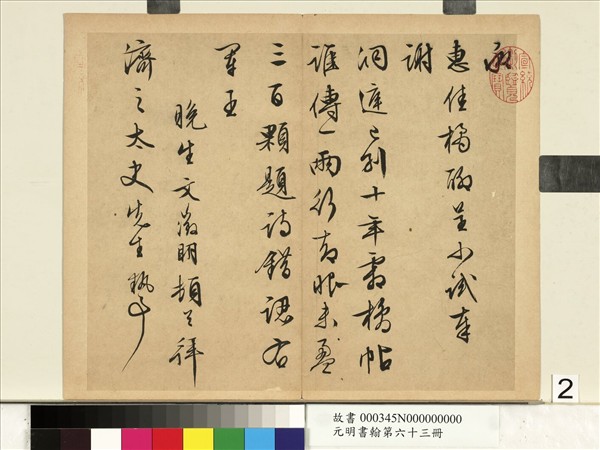 承
惠佳橘聊呈小詩奉
謝
洞庭已別十年霜橘帖
誰傳一兩行眼未盈
三百顆題詩錯認右
軍王
晚生文徵明頓首拜
濟之太史先生執事
2
故書 000345N000000000
元明書翰第六十三冊